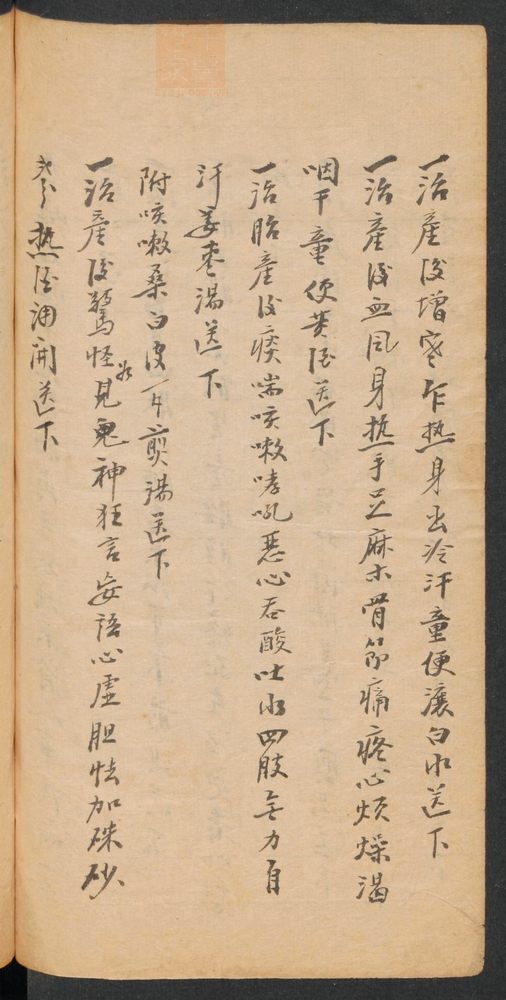 一治産後增寒乍热身出冷汗童便滚白水送下
一治産後血風身热手足麻木骨節痛疼心烦燥渴
咽干童便黄酒送下
一治胎産後痰喘咳嗽哮吼恶心吞酸吐水四肢無力自
汗姜枣湯送下
附咳嗽桑白皮一片煎湯送下
一治産後驚怪如見鬼神狂言妄語心虚胆怯加硃砂
叁分热酒調開送下